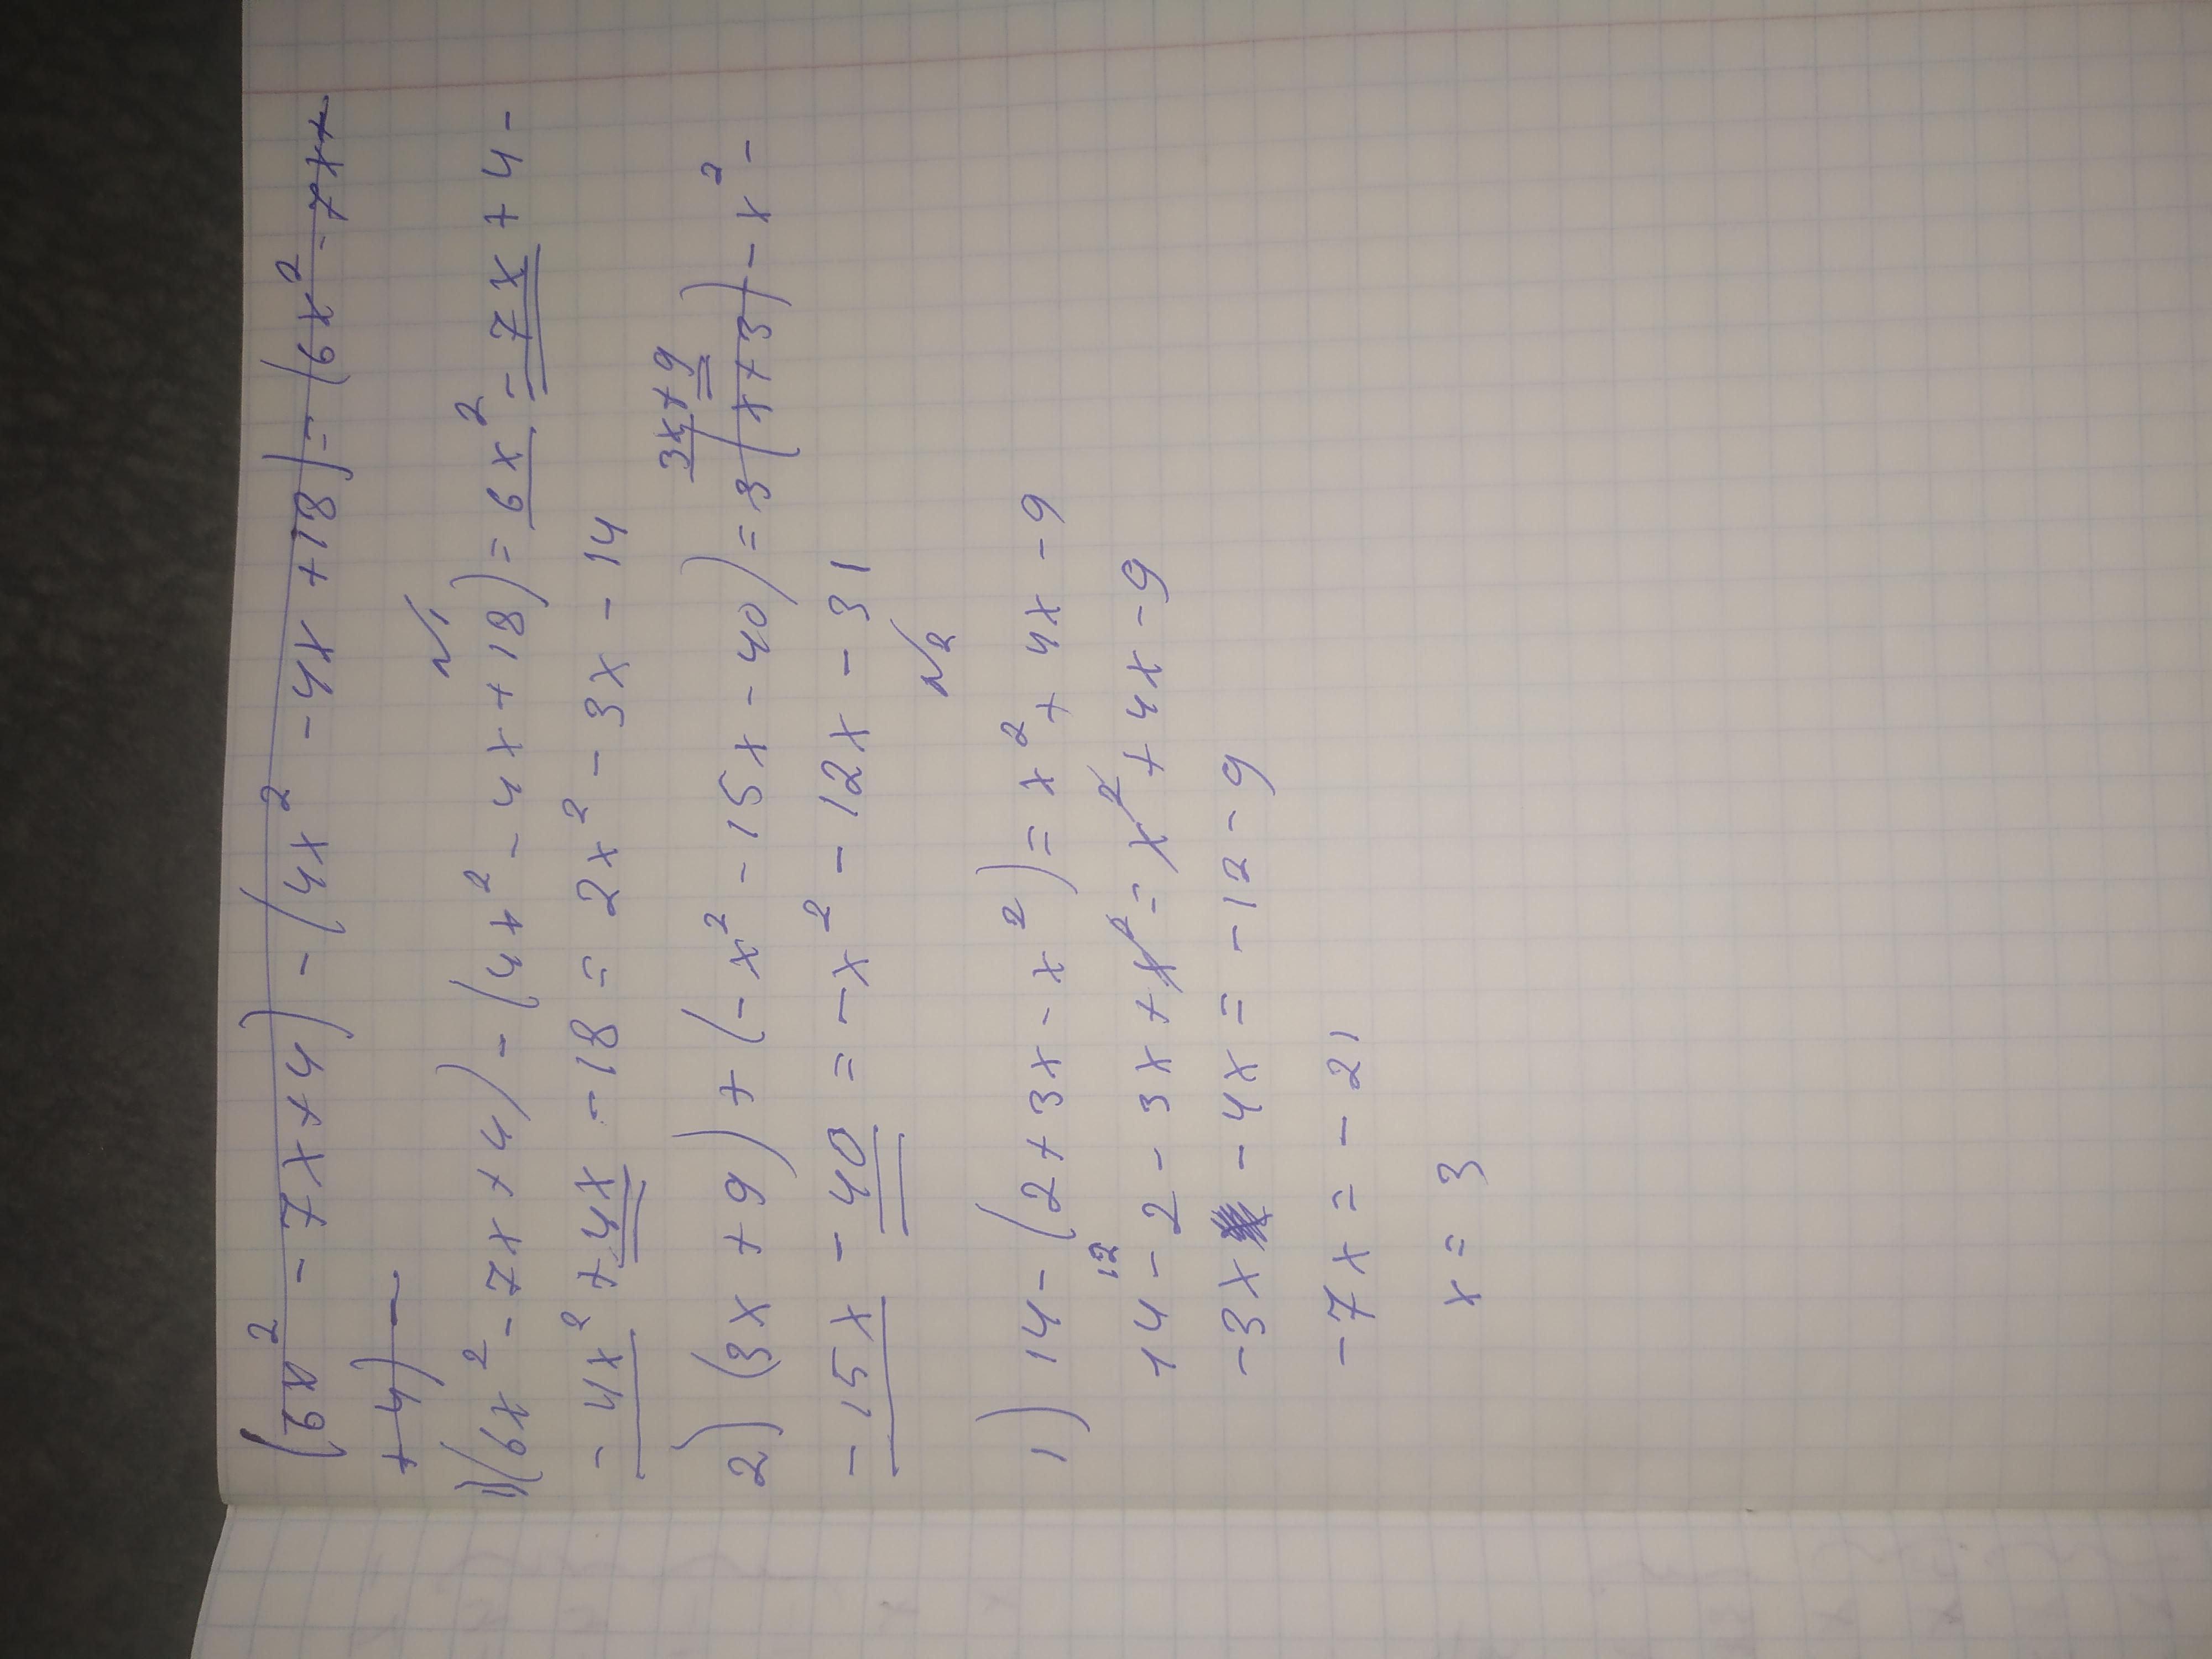 (6x² - 7x + 4) - (4x² - 4x + 18) = (6x² - 7x +
+ 4) -
N1
1) (6x² - 7x + 4) - (4x² - 4x + 18) = 6x² - 7x + 4 -
- 4x² + 4x - 18 = 2x² - 3x - 14
3x + 9
2) (3x + 9) + (-x² - 15x - 40) = 3(x + 3) - x² -
- 15x - 40 = -x² - 12x - 31
N2
1) 14 - (2 + 3x - x²) = x² + 4x - 9
12
14 - 2 - 3x + x² = x² + 4x - 9
-3x - 4x = -12 - 9
-7x = -21
x = 3